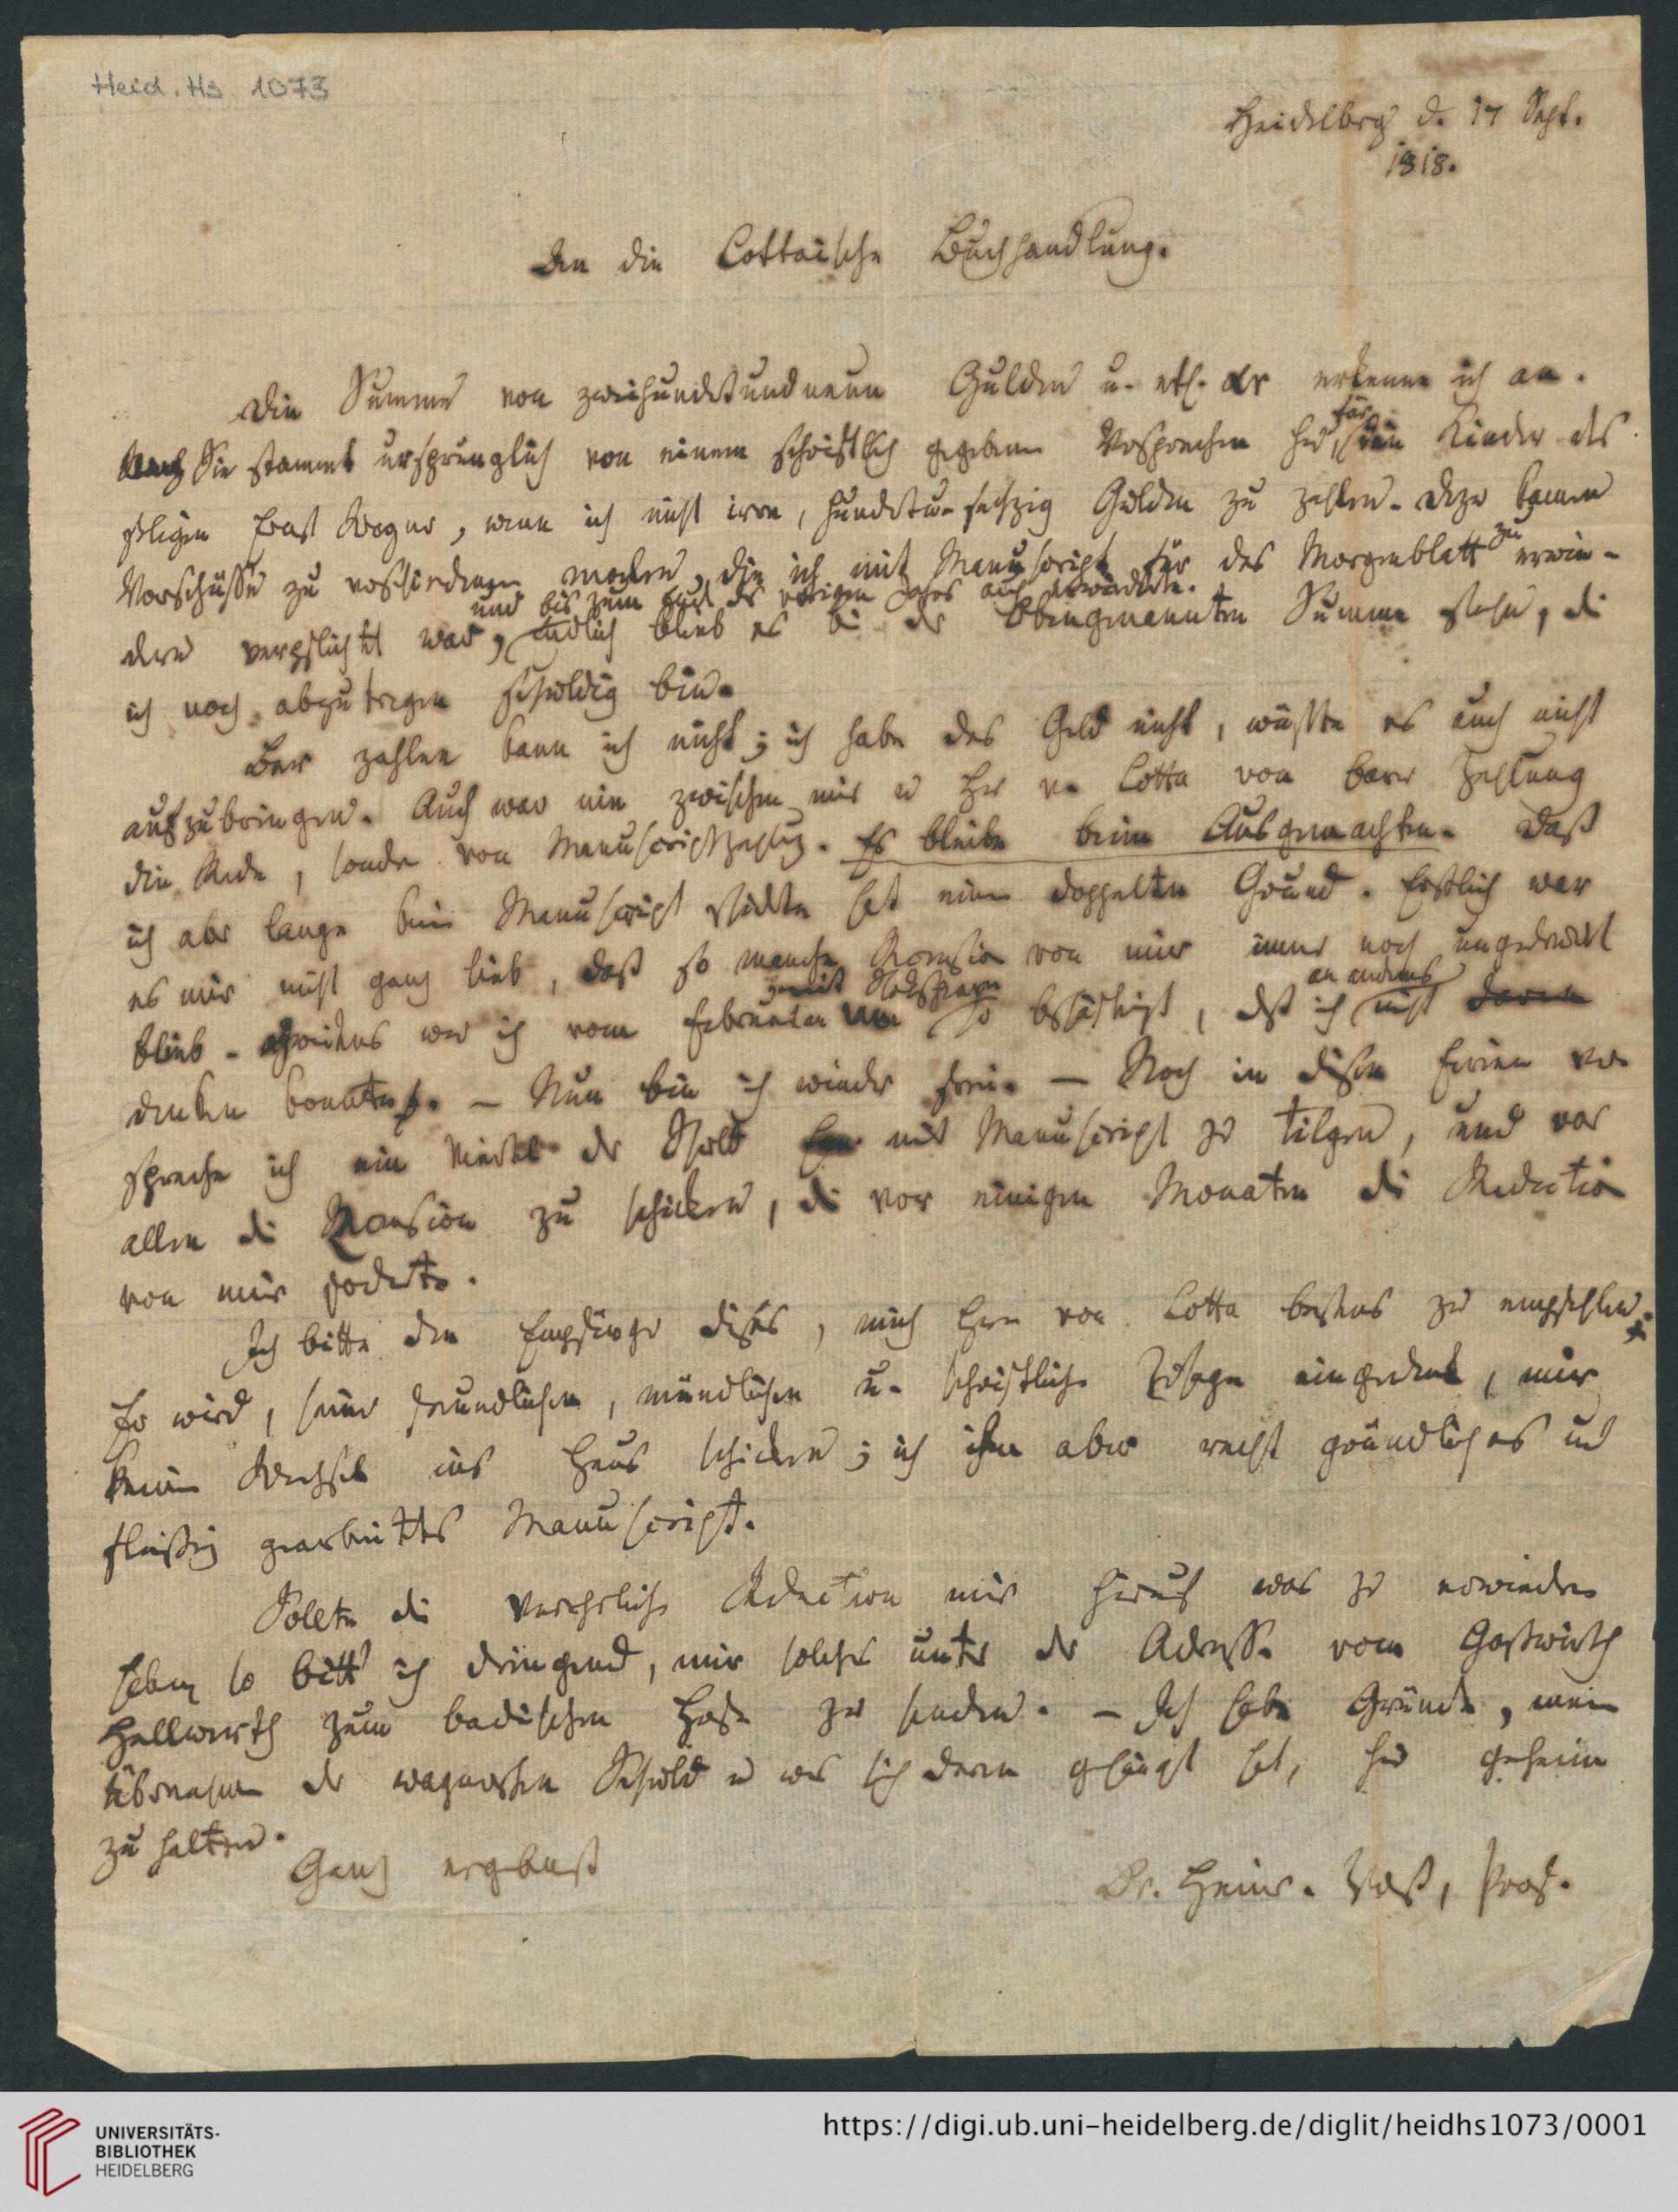 Heid. Hs. 1073
Heidelberg d. 17 Sept.
1818.
An die Cottaische Buchhandlung.
Die Summe von zweihundertundneun Gulden u. etl. xr erkenne ich an.
Sie stammt ursprünglich von einem schriftlich gegebenen Versprechen her, für die Kinder des
seligen Ernst Wagner, wenn ich nicht irre, hundertu. sechzig Gulden zu zahlen. Dazu kamen
Vorschüsse zu verschiedenen malen, die ich mit Manuscript für das Morgenblatt zu erwie-
und bis zum Ende des vorigen Jahres auch erwiederte.
dern verpflichtet war, endlich blieb es bei der obengenannten Summe stehn, die
ich noch abzutragen schuldig bin.
Bar zahlen kann ich nicht; ich habe das Geld nicht, wüßte es auch nicht
aufzubringen. Auch war nie zwischen mir u Her v. Cotta von barer Zahlung
die Rede, sonder von Manuscriptzahlung. Es bleibe beim Ausgemachten. Daß
ich aber lange kein Manuscript schickte hat einen doppelten Grund. Erstlich war
es mir nicht ganz lieb, daß so manche Recension von mir immer noch ungedruckt
blieb. Zweitens war ich vom Februar an mit Shakspeare so beschäftigt, daß ich an anderes nicht
denken konnte. – Nun bin ich wieder frei. – Noch in diesen Ferien ver
spreche ich ein Viertel der Schuld mit Manuscript zu tilgen, und vor
allen die Recension zu schicken, die vor einigen Monaten die Redaction
von mir foderte.
Ich bitte den Empfänger dieses, mich Hern von Cotta bestens zu empfehlen.
Er wird, seiner freundlichen, mündlichen u. schriftlichen Zusage eingedenk, mir
keinen Wechsel ins Haus schicken; ich ihm aber recht gründliches und
fleißig gearbeitetes Manuscript.
Sollte die verehrliche Redaction mir hierauf was zu erwiedern
haben so bitt ich dringend, mir solches unter der Adresse vom Gastwirth
Hellwerth zum badischen Hofe zu senden. – Ich habe Gründe, meine
Übernahme der wagnerschen Schuld u was sich daran gehängt hat, hier geheim
zu halten.
Ganz ergebenst
Dr. Heinr. Voß, Prof.
UNIVERSITÄTS-
BIBLIOTHEK
HEIDELBERG
https://digi.ub.uni-heidelberg.de/diglit/heidhs1073/0001